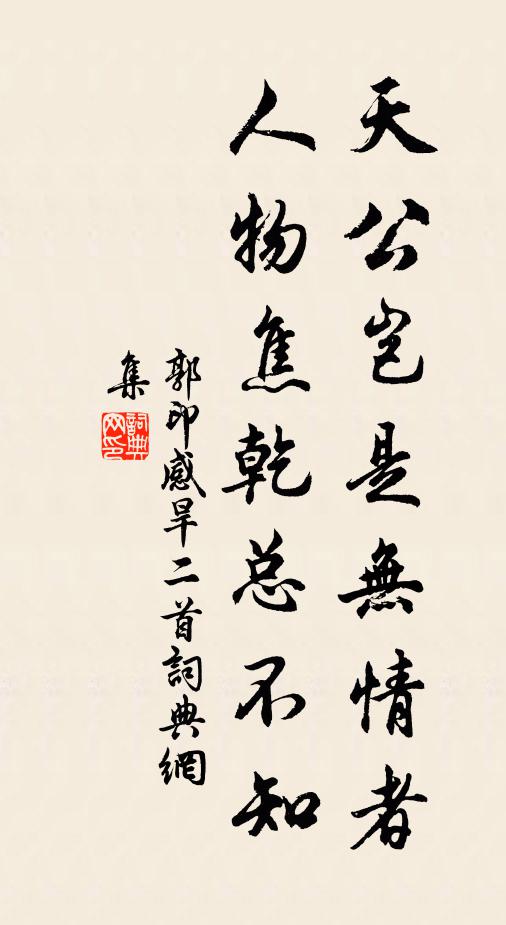 天公豈是無情者
人物焦乾总不知
郭印感旱二首詞典網
集
詞典
网印